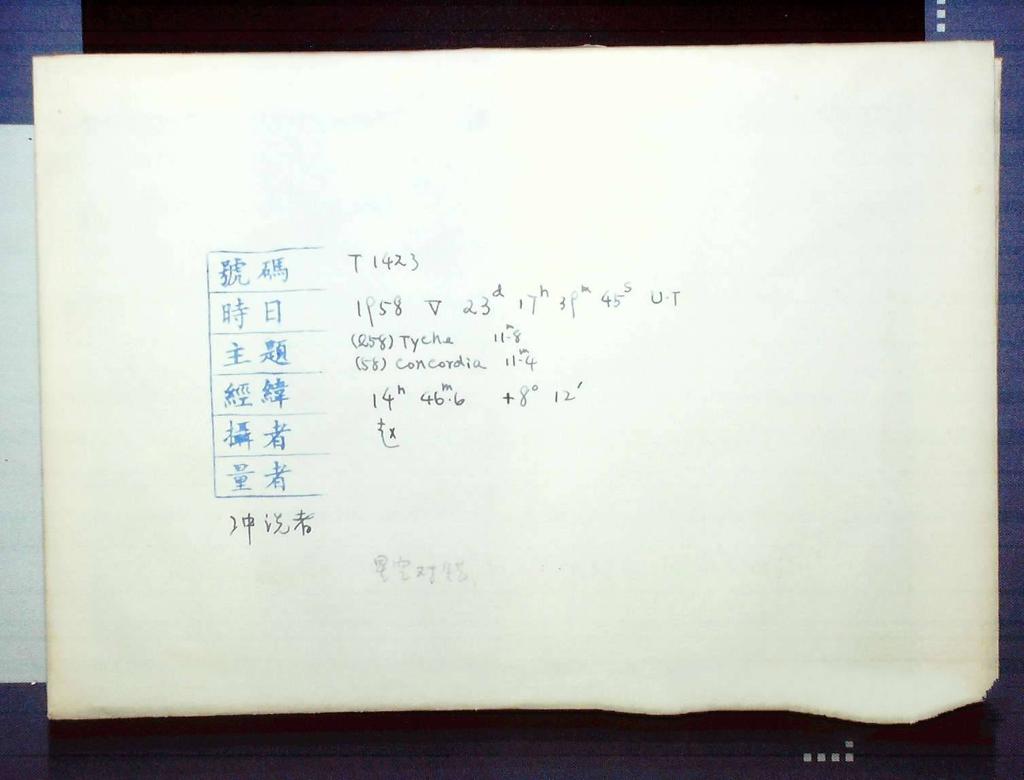 號碼 T 1423
時日 1958 V 23ᵈ 17ʰ 39ᵐ 45ˢ U.T
主題 (258) Tyche 11ᵐ.8
(58) Concordia 11ᵐ.4
經緯 14ʰ 46ᵐ.6 +8° 12′
攝者 赵
量者
冲洗者
星空对错